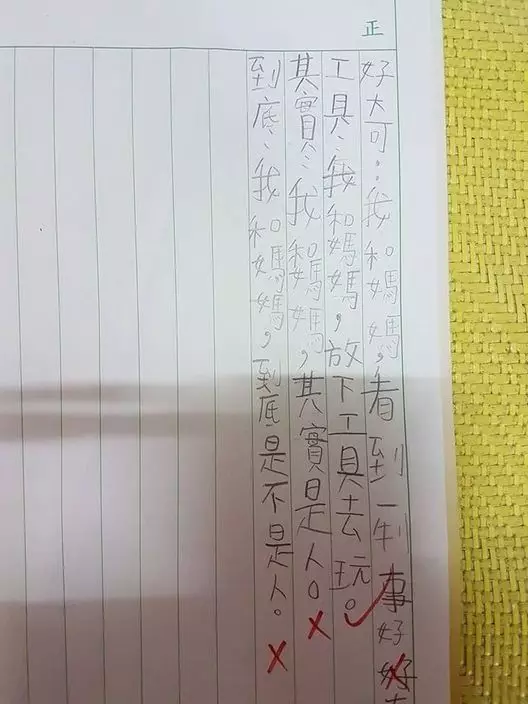 正
好奇:我和媽媽,看到一制事好
工具:我和媽媽,放下工具去玩。
其實:我和媽媽,其實是人。
到底:我和媽媽,到底是不是人。